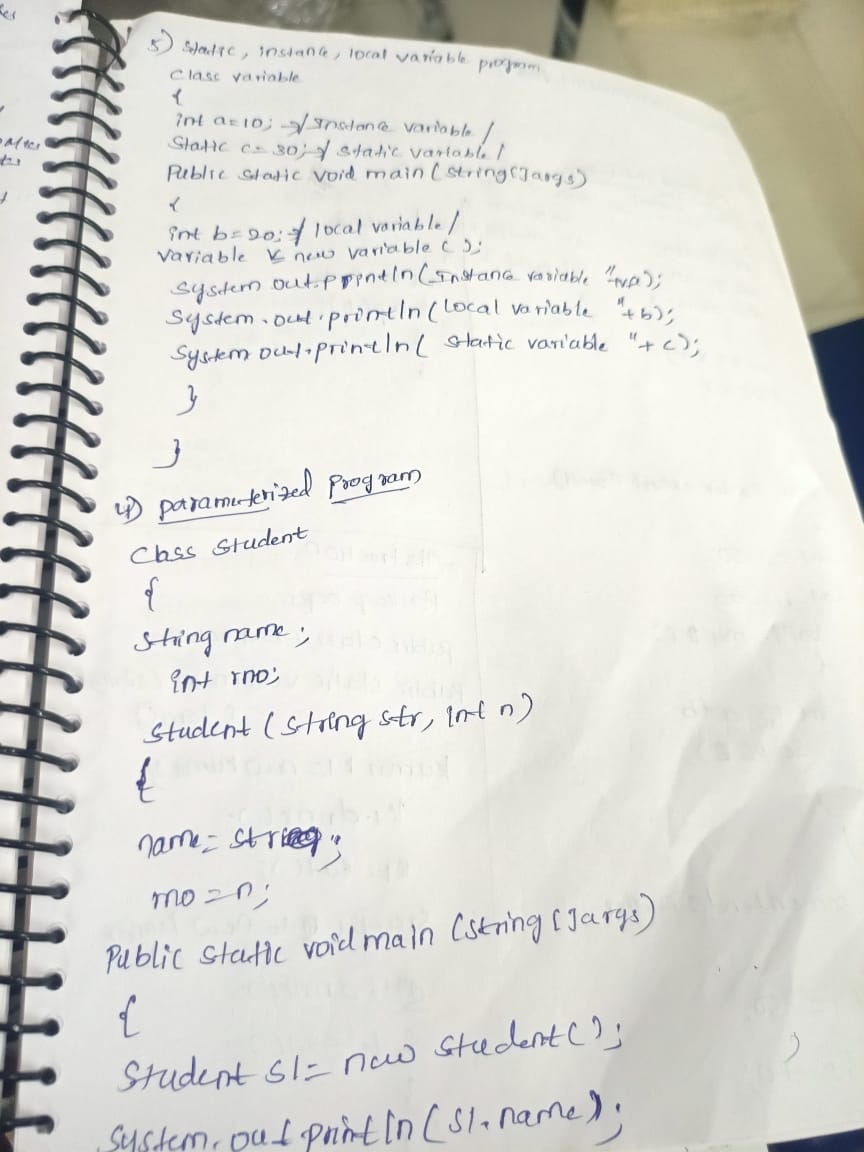 5) Static, instance, local variable program
Class variable
{
int a=10; // Instance variable /
Static c= 30; // static variable /
Public static void main (string[]args)
{
int b=20; // local variable /
variable v= new variable ( );
system out.println(Instance variable "+v.a);
System.out.println(Local variable "+b);
System out.println( static variable "+c);
}
}
4) parameterized program
Class Student
{
String name;
int rno;
Student (String str, int n)
{
name= str;
rno=n;
Public static void main (string[]args)
{
Student s1= new student();
System.out println(s1.name);